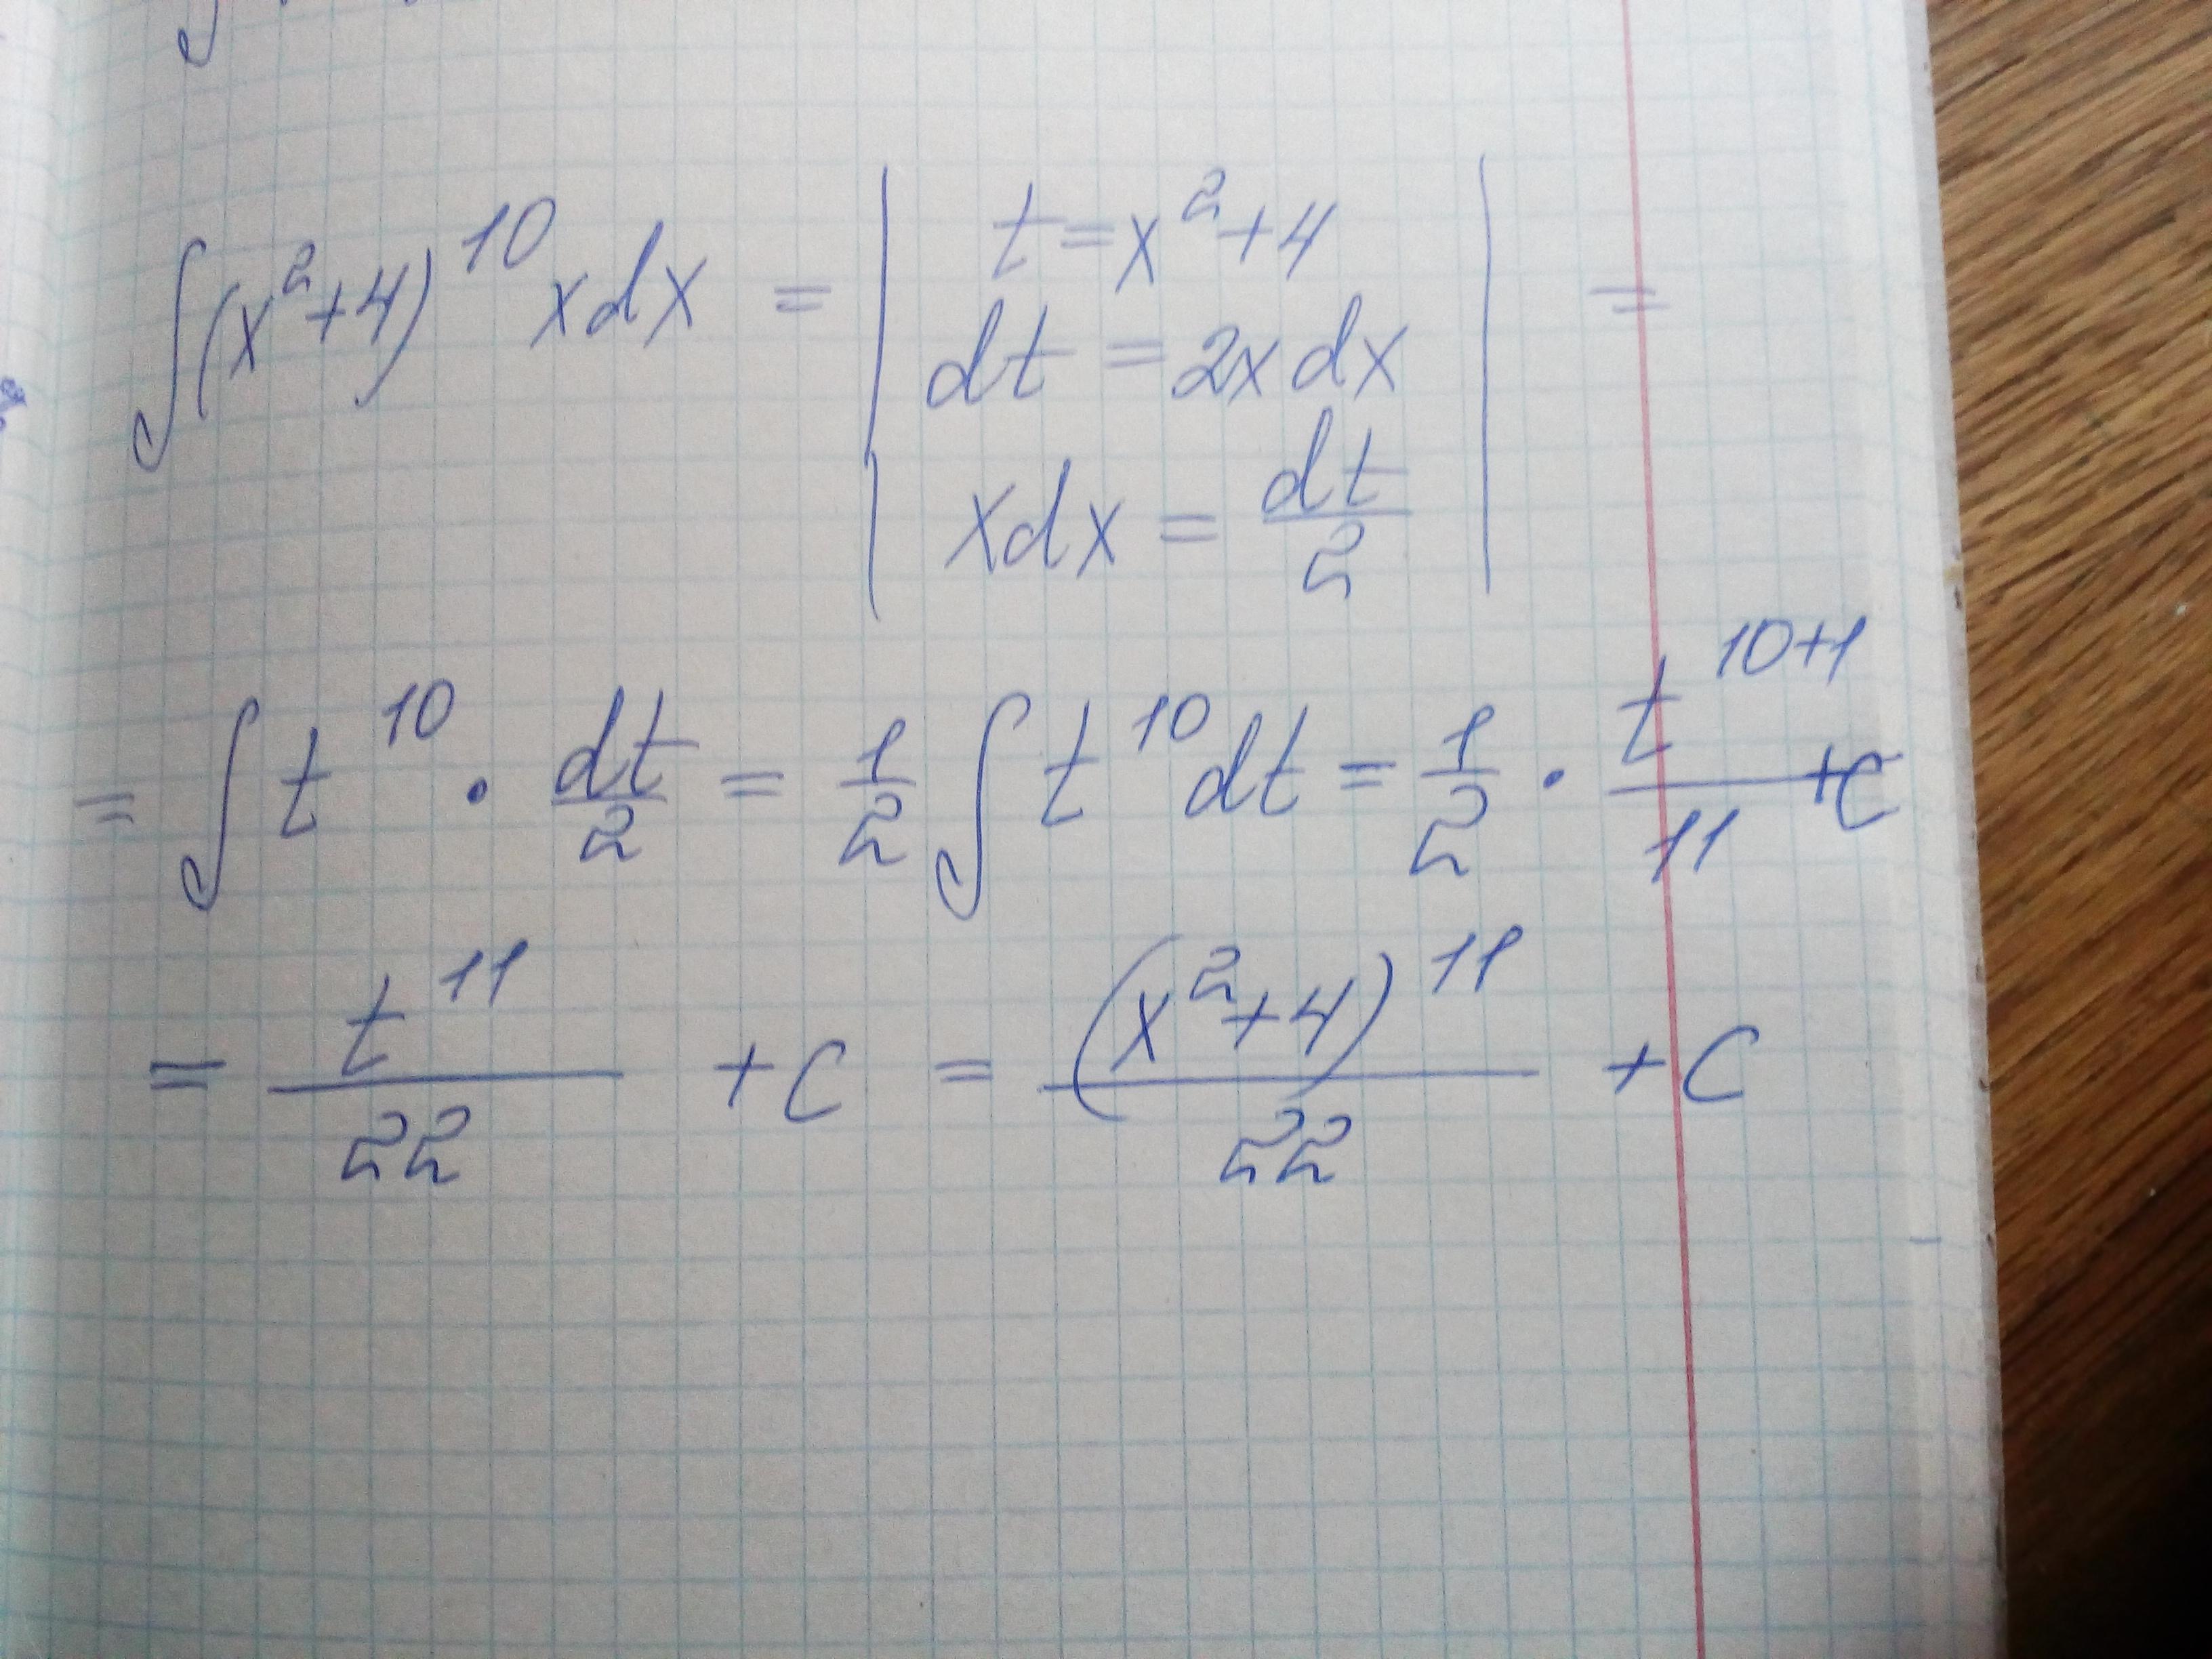 ∫(x²+4)¹⁰xdx = | t=x²+4 | =
dt = 2xdx
xdx = dt/2
= ∫t¹⁰ · dt/2 = 1/2 ∫t¹⁰dt = 1/2 · t¹⁰⁺¹/11 + C
= t¹¹/22 + C = (x²+4)¹¹/22 + C